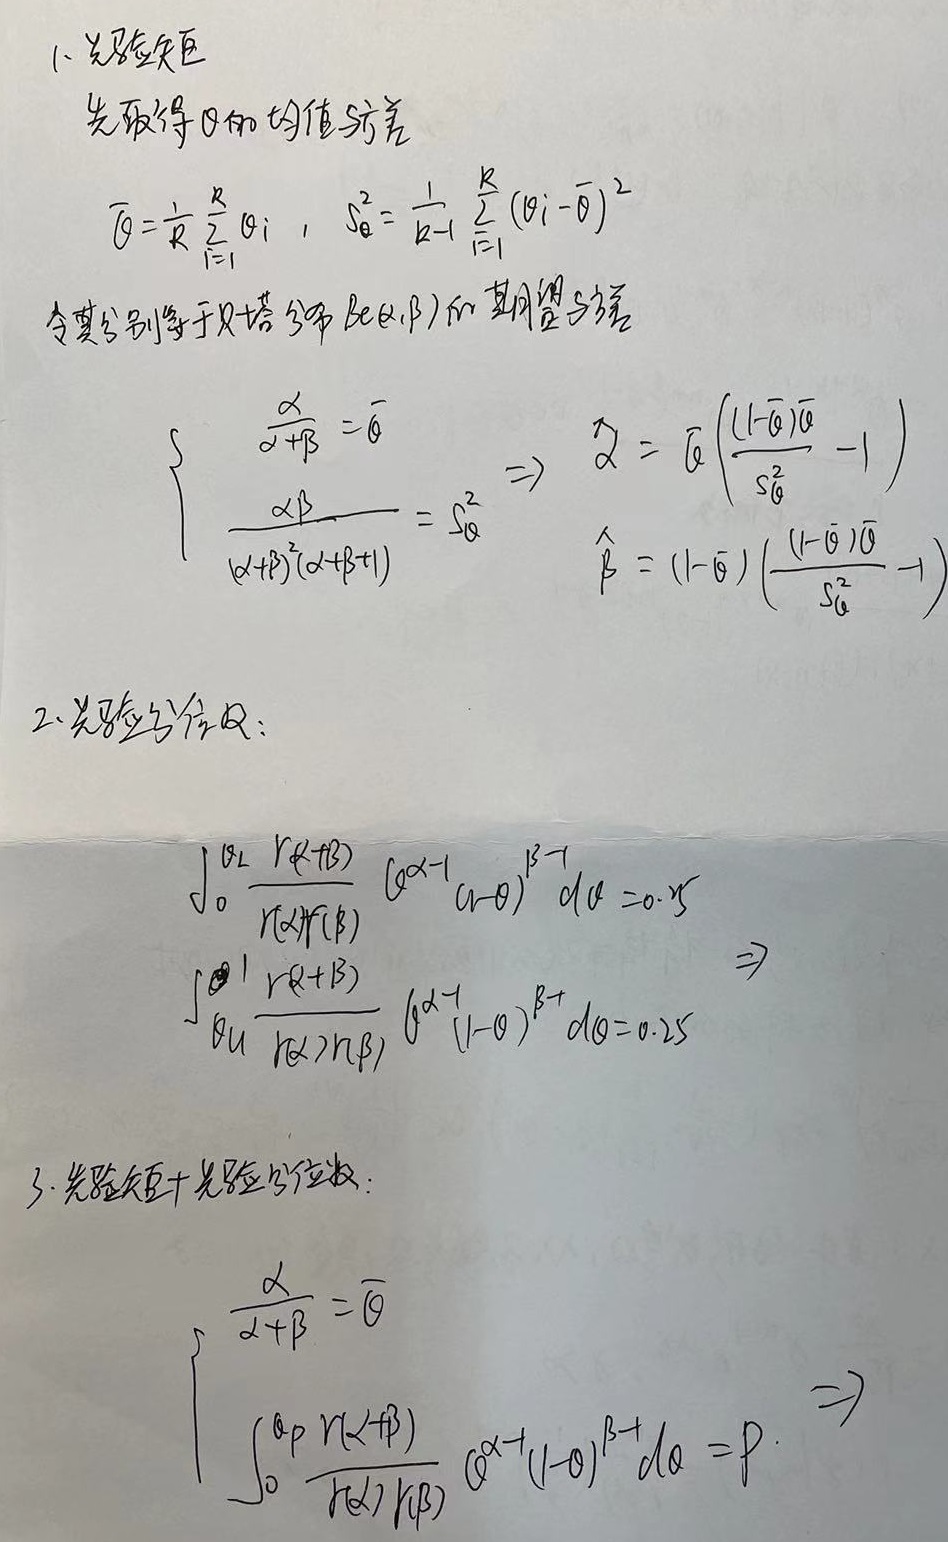 1、先验矩
先取得θ的均值与方差
θ̄ = 1/k ∑_{i=1}^{k} θi , S_θ² = 1/(k-1) ∑_{i=1}^{k} (θi - θ̄)²
令其分别等于贝塔分布 Be(α,β) 的期望与方差
α/(α+β) = θ̄
αβ/((α+β)²(α+β+1)) = S_θ²
⇒
α̂ = θ̄ ( (1-θ̄)θ̄ / S_θ² - 1 )
β̂ = (1-θ̄) ( (1-θ̄)θ̄ / S_θ² - 1 )
2、先验分位数:
∫_0^{θL} Γ(α+β)/(Γ(α)Γ(β)) θ^{α-1} (1-θ)^{β-1} dθ = 0.25
∫_{θU}^{1} Γ(α+β)/(Γ(α)Γ(β)) θ^{α-1} (1-θ)^{β-1} dθ = 0.25
⇒
3、先验矩+先验分位数:
α/(α+β) = θ̄
∫_0^{θp} Γ(α+β)/(Γ(α)Γ(β)) θ^{α-1} (1-θ)^{β-1} dθ = p.
⇒